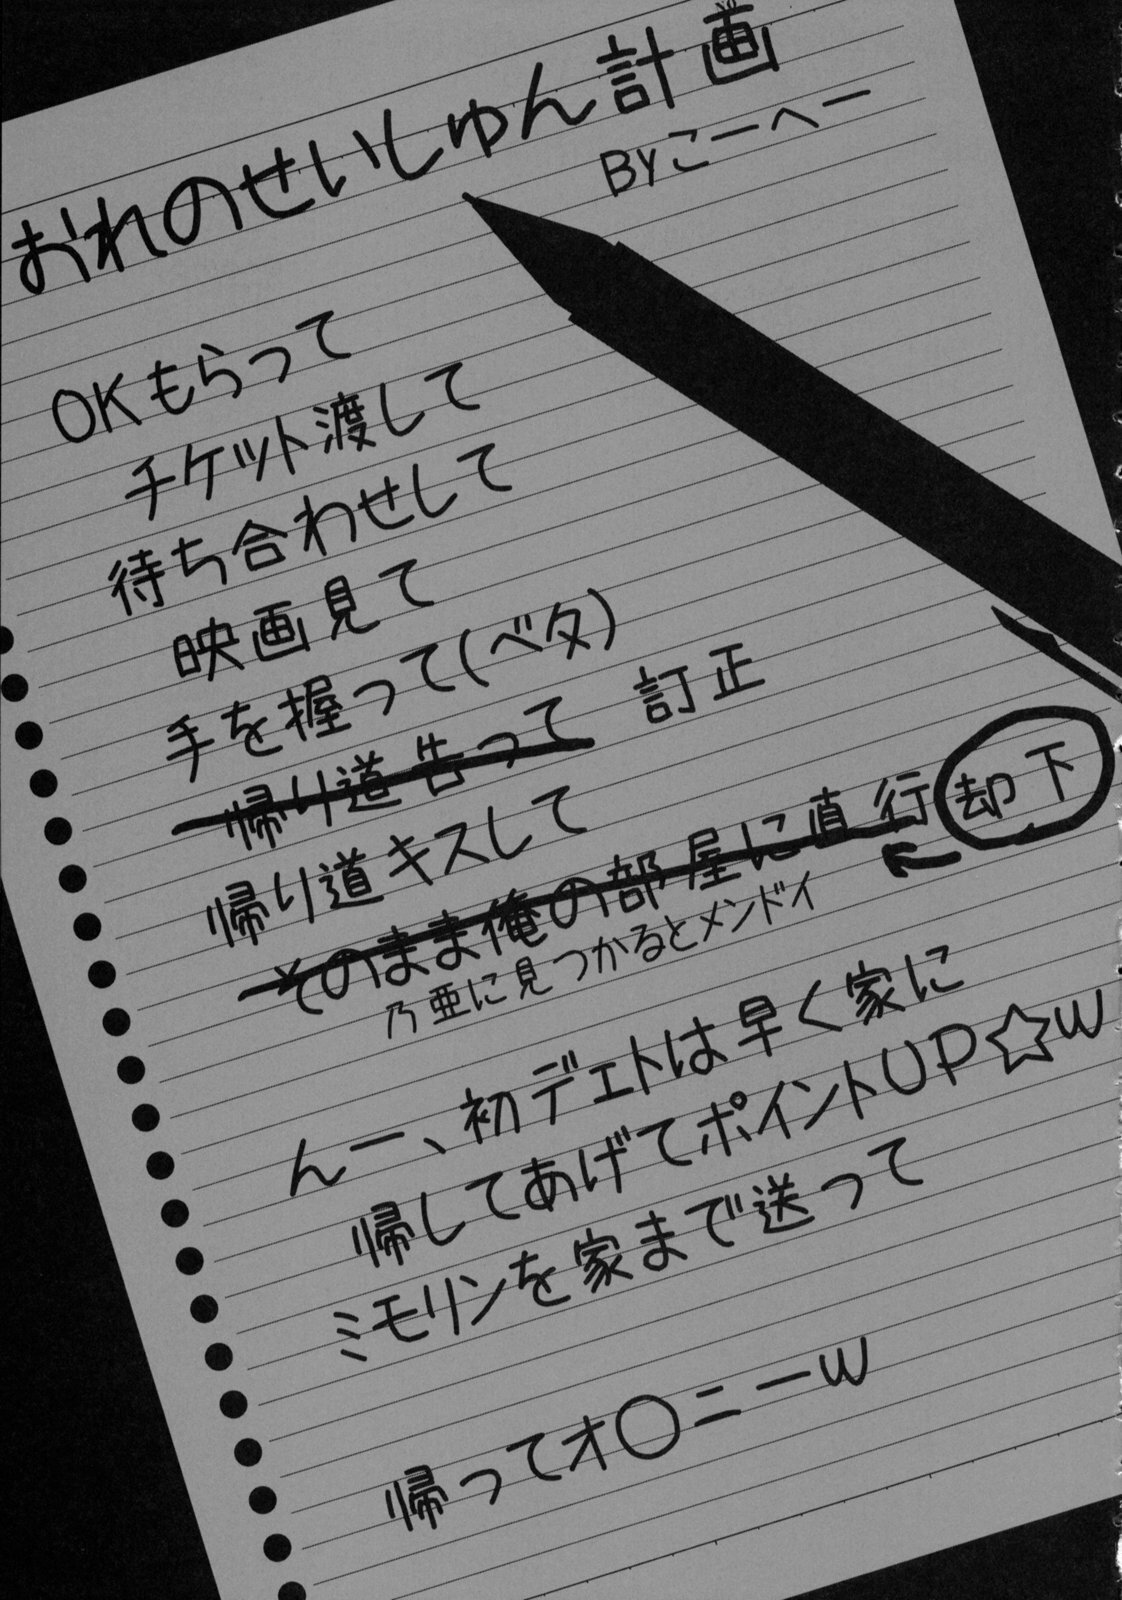 おれのせいしゅん計画
BYこーへー
OKもらって
チケット渡して
待ち合わせして
映画見て
手を握って(ベタ)
帰り道告って 訂正
帰り道キスして
そのまま俺の部屋に直行 却下
乃亜に見つかるとメンドイ
んー、初デェトは早く家に
帰してあげてポイントUP☆w
ミモリンを家まで送って
帰ってオ〇ニーw